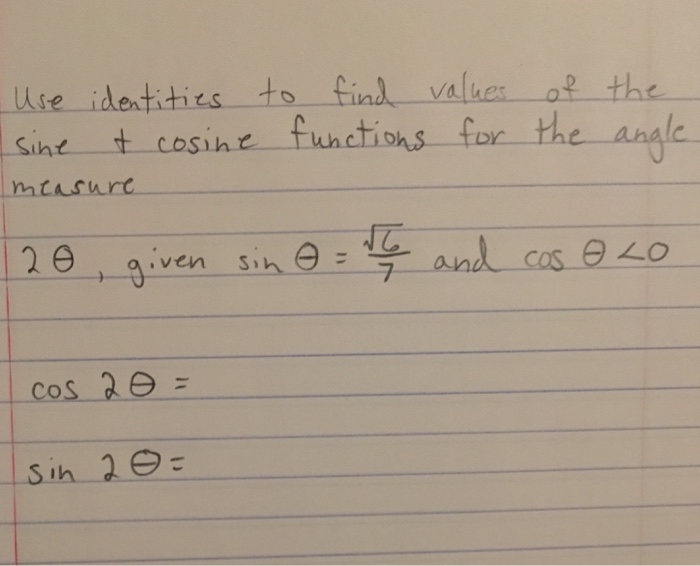 Use identities to find values of the
sine + cosine functions for the angle
measure
2θ, given sin θ = √6/7 and cos θ <0
cos 2θ =
sin 2θ =